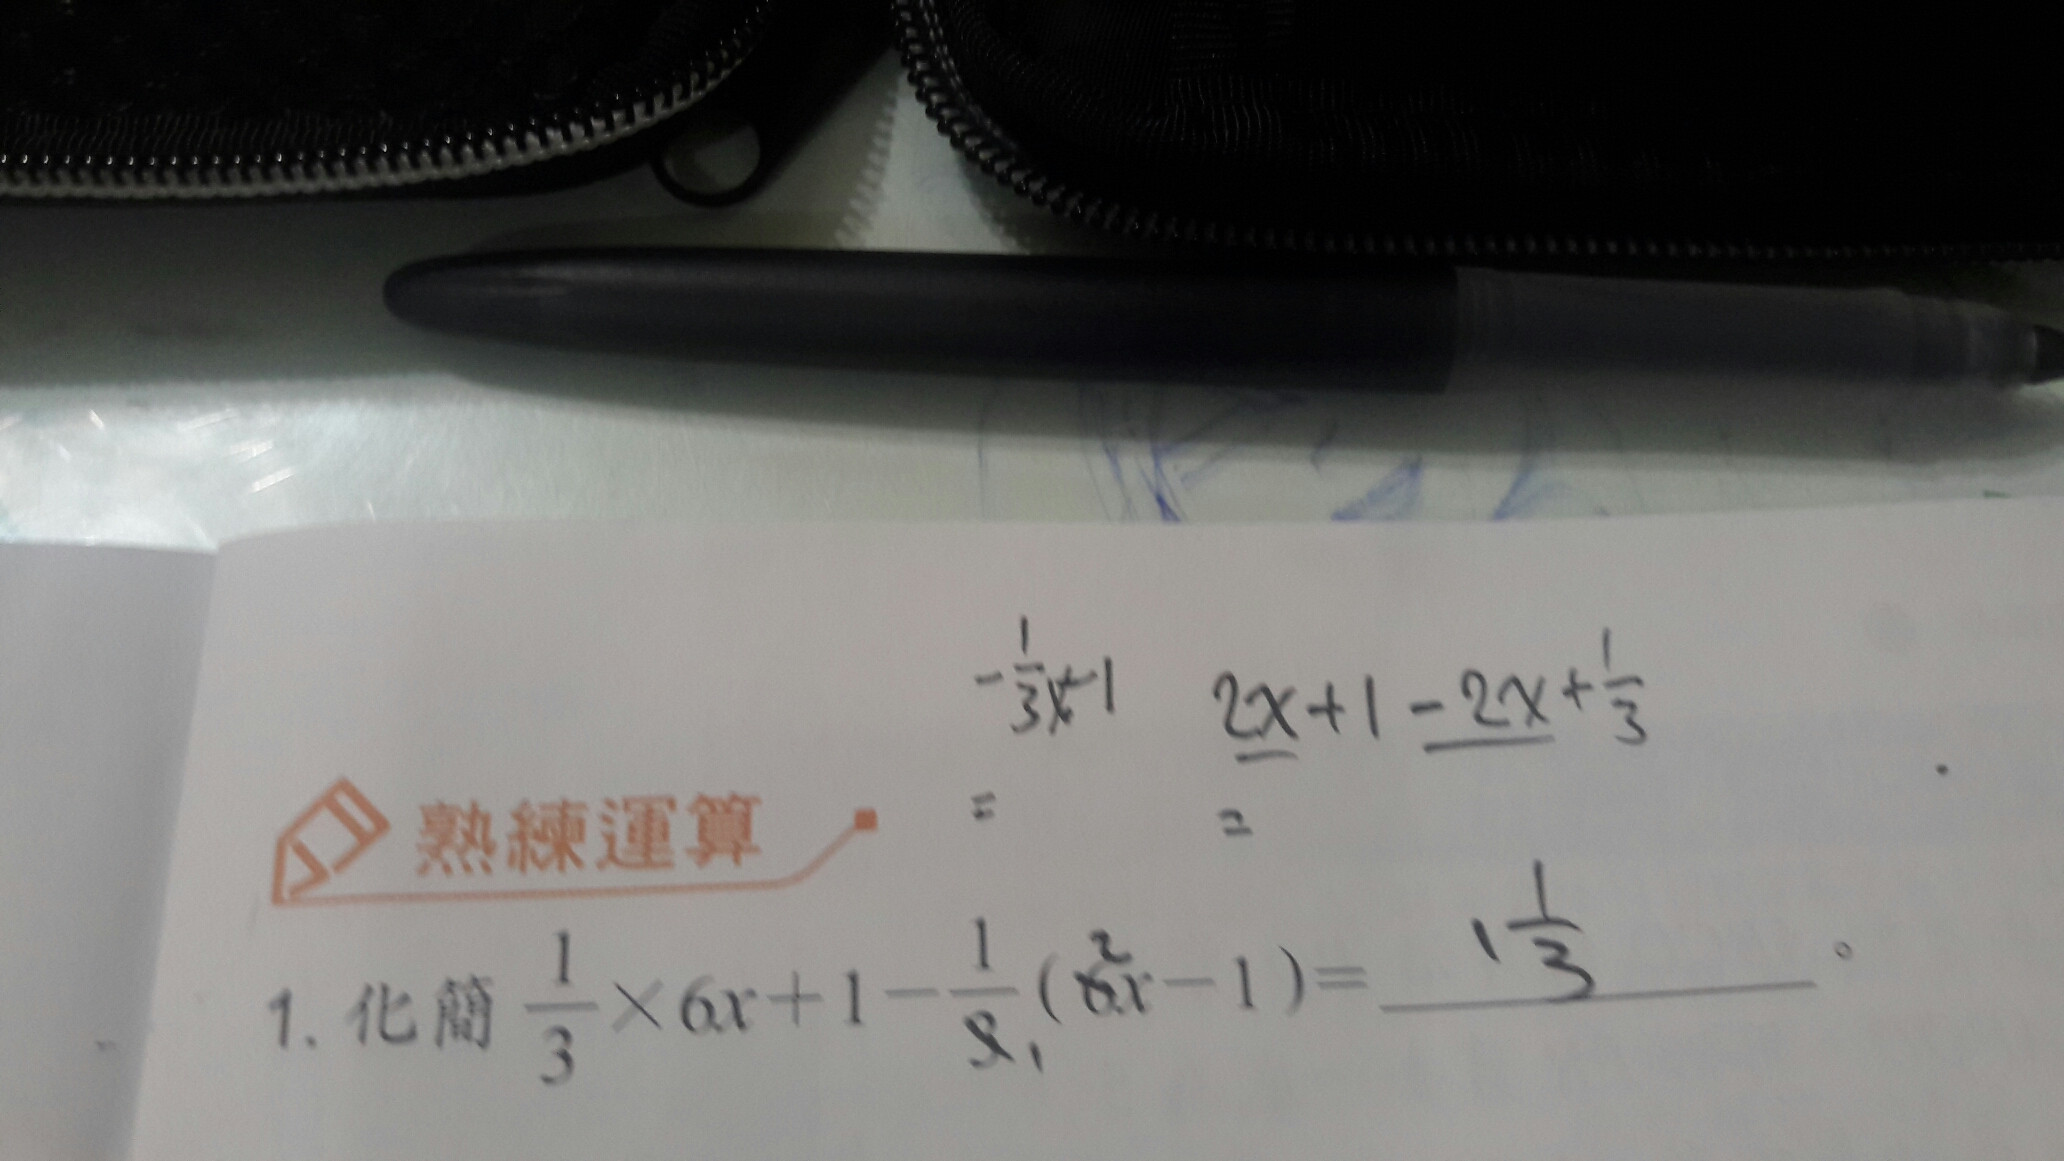 -1/3x-1 2x+1-2x+1/3
= =
熟練運算
1 1/3
1. 化簡 1/3×6x+1-1/3(6x-1)=。
2
1